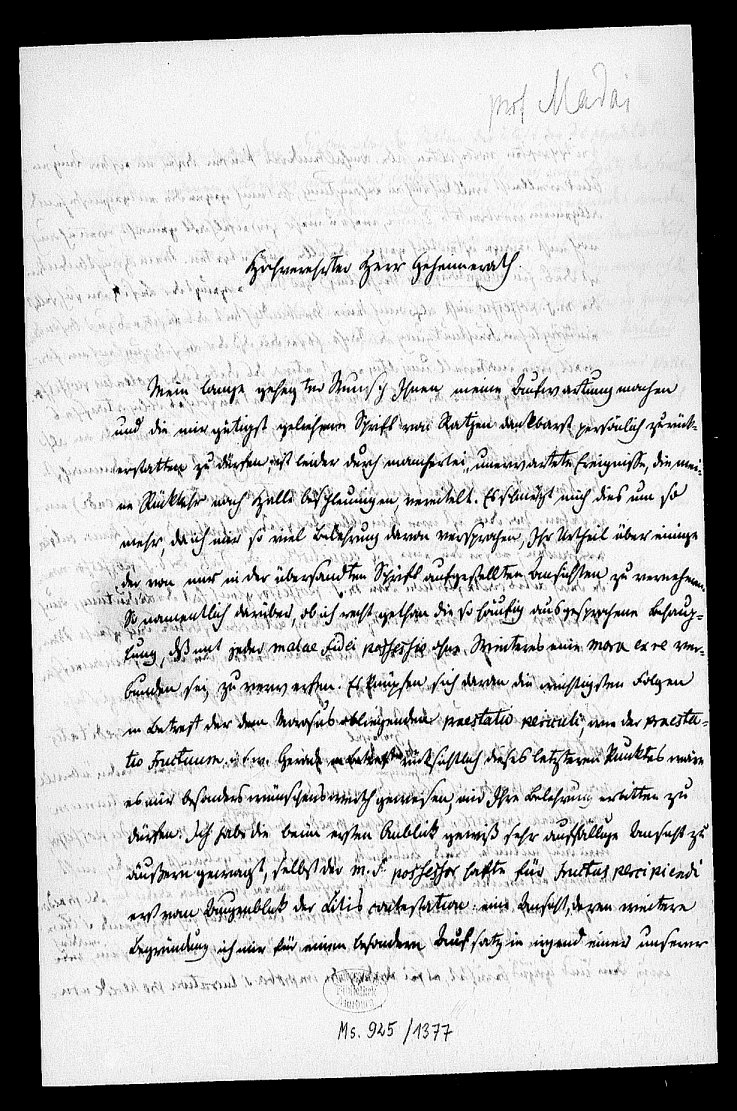 prof Madai
Hochverehrter Herr Geheimerath
Mein lange gehegter Wunsch Ihnen meine Aufwartung machen
und die mir gütigst geliehene Schrift von Ratzen dankbarst persönlich zurück-
erstatten zu dürfen, ist leider durch mancherlei, unerwartete Ereignisse, die mei-
ne Rückkehr nach Halle beschleunigen, vereitelt. Es schmerzt mich dies um so
mehr, da ich mir so viel Belehrung davon versprochen, Ihr Urtheil über einige
der von mir in der übersandten Schrift aufgestellten Ansichten zu vernehmen.
So namentlich darüber, ob ich recht gethan die so häufig ausgesprochene Behaup-
tung, daß mit jeder malae fidei possessio ohne Weiteres eine mora ex re ver-
bunden sei, zu verwerfen. Es knüpfen sich daran die wichtigsten Folgen
in Betreff der dem Morosus obliegenden praestatio periculi, wie der praesta-
tio fructuum usw. Gerade rücksichtlich dieses letzteren Punktes wäre
es mir besonders wünschenswerth gewesen, mir Ihre Belehrung erbitten zu
dürfen. Ich habe die beim ersten Anblick gewiß sehr auffallige Ansicht zu
äußern gewagt, selbst der m. f. possessor hafte für fructus percipiendi
erst vom Augenblick der Litis contestation: eine Ansicht, deren weitere
Begründung ich mir für einen besondern Aufsatz in irgend einer unserer
Ms. 925 / 1377